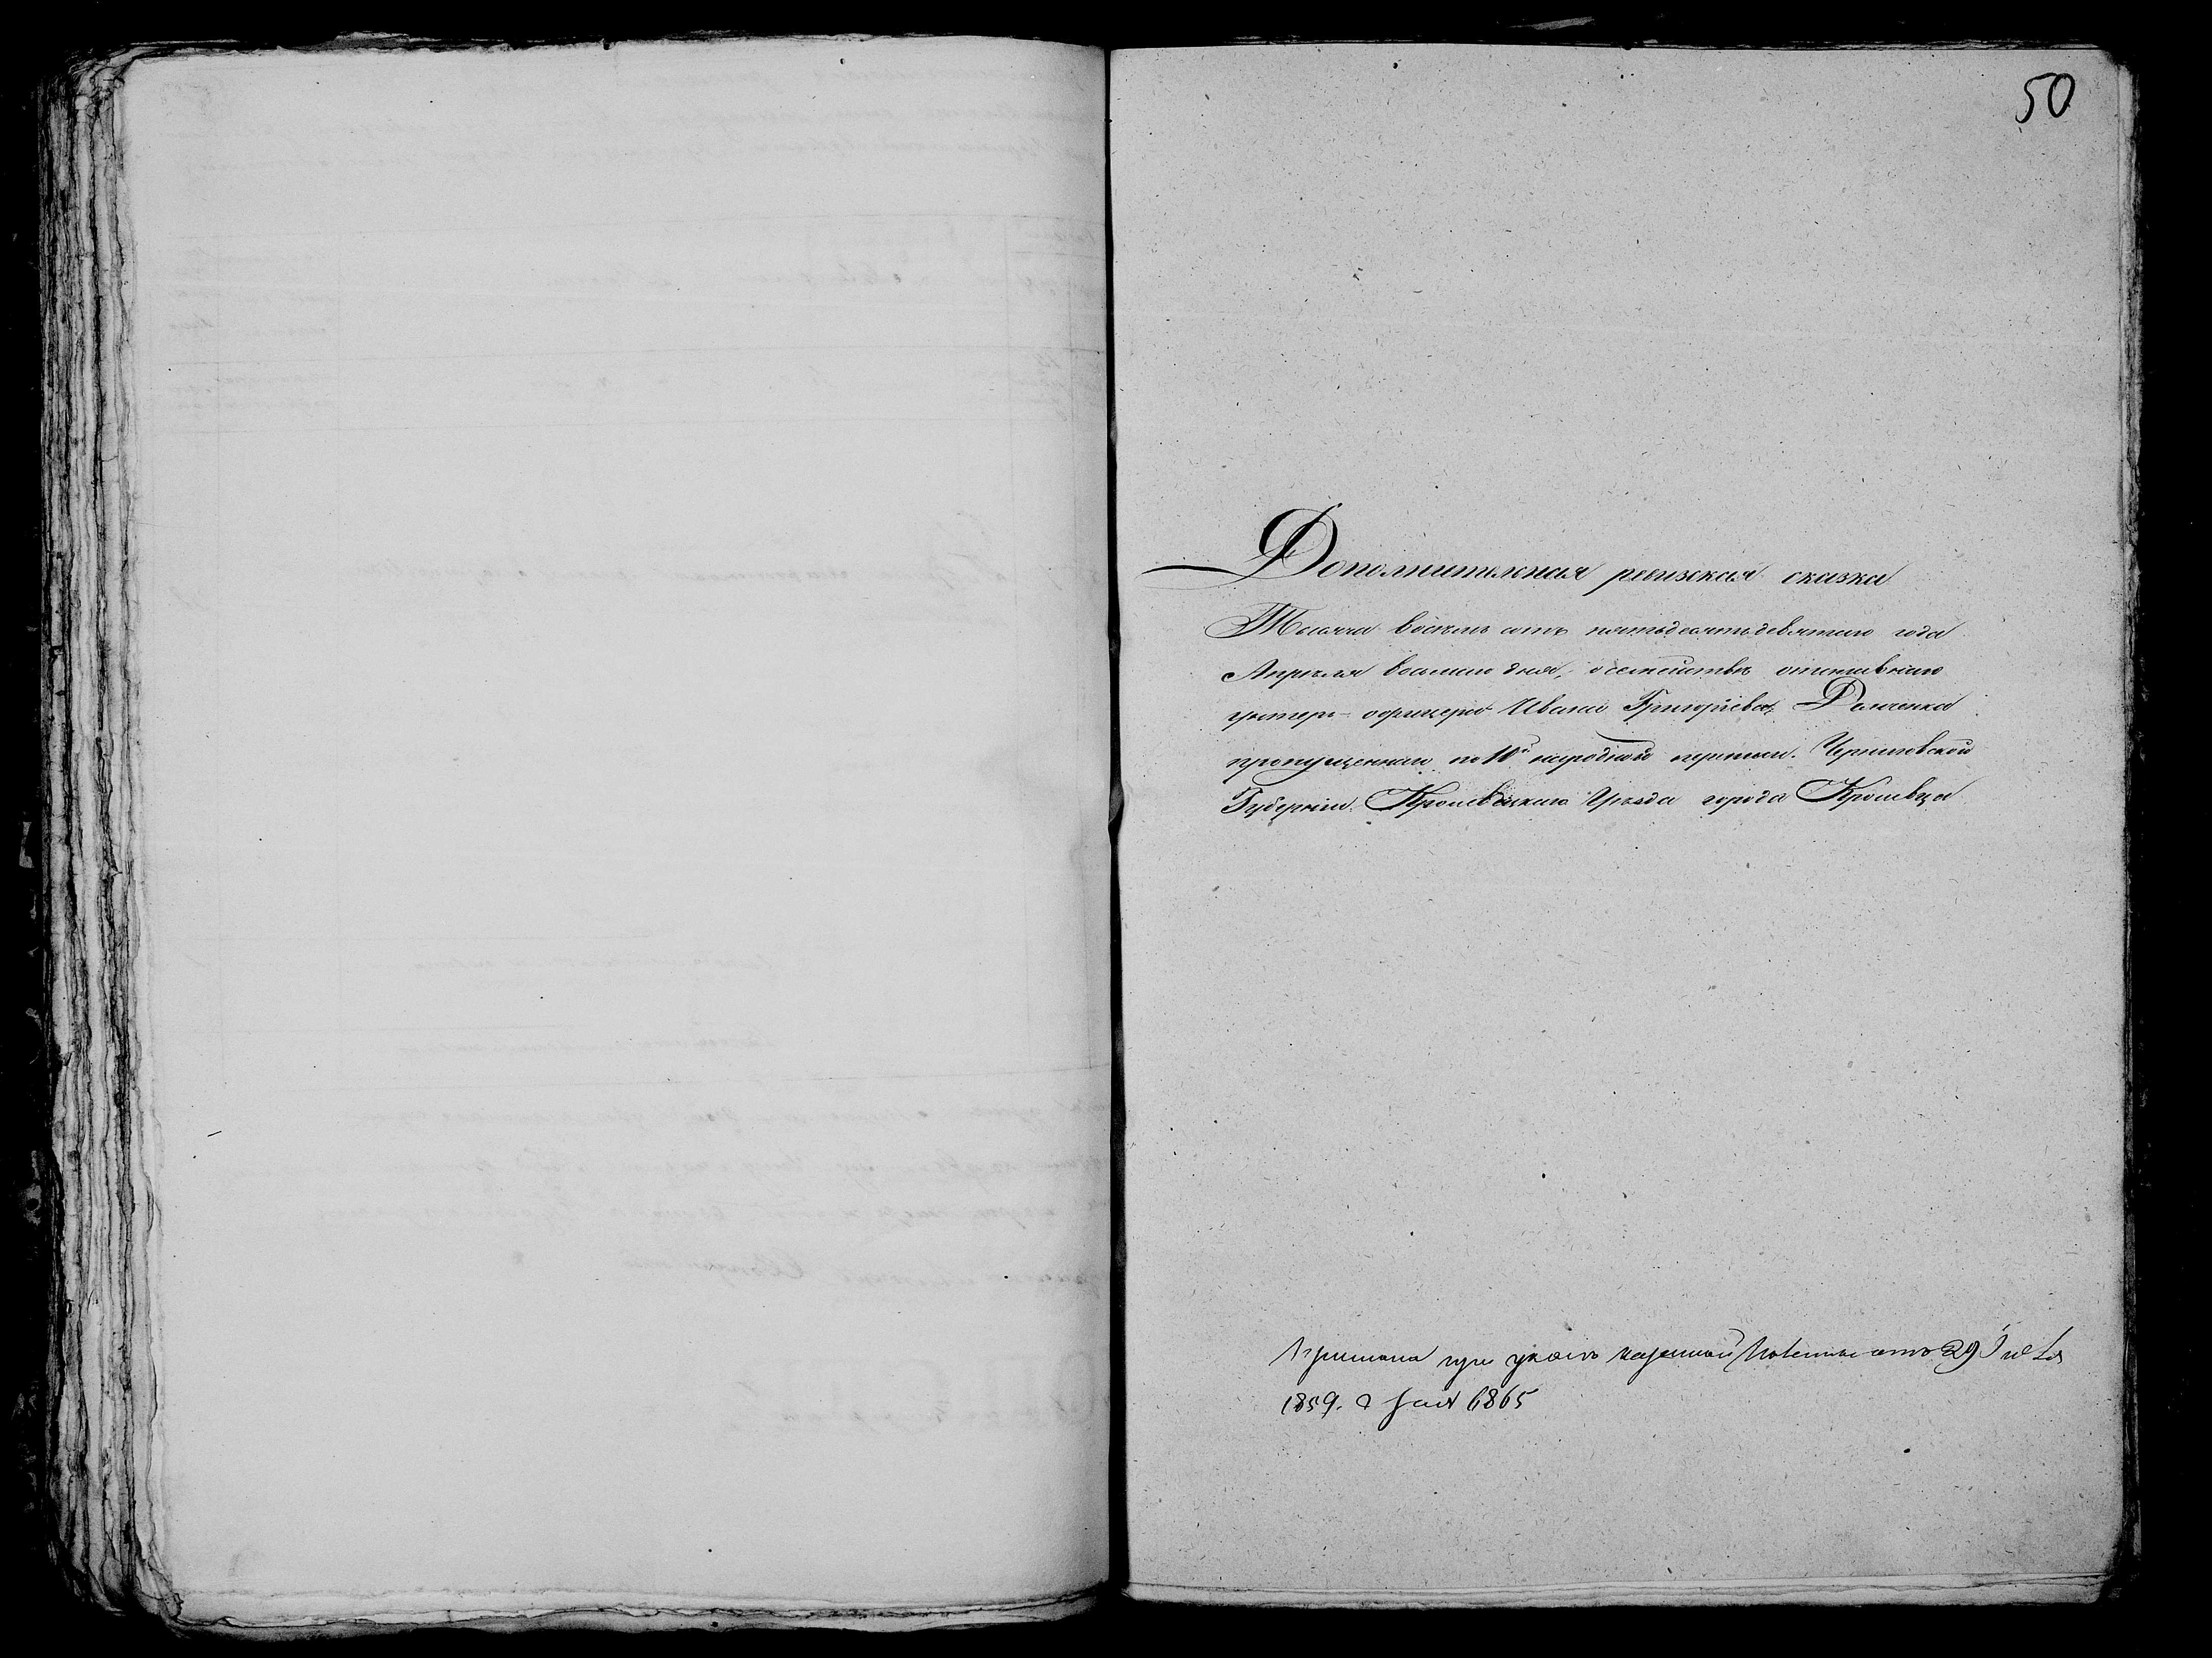 50
Дополнительная ревизская сказка
Тысяча восемь сотъ пятьдесятъ девятаго года
Апрѣля восьмаго дня, о семействѣ отставнаго
унтеръ-офицера Ивана Григорiева
пропущеннаго по 10й народной переписи. Черниговской
Губернiи Кролевецкаго Уѣзда города Кролевца
при указѣ казенной Палаты отъ 29 Iюля
1859. За № 6865